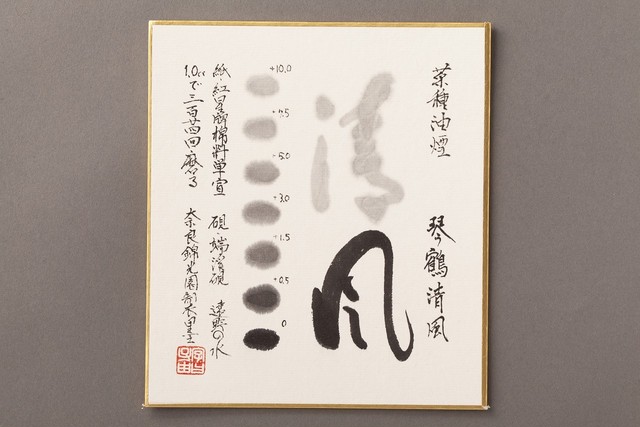 菜種油煙　琴鶴清風
清風
+10.0
+7.5
+5.0
+3.0
+1.5
+0.5
0
紙・紅星牌棉料単宣　硯・端渓硯　の水
1.0ccで三百廿四回磨る　奈良錦光園製墨